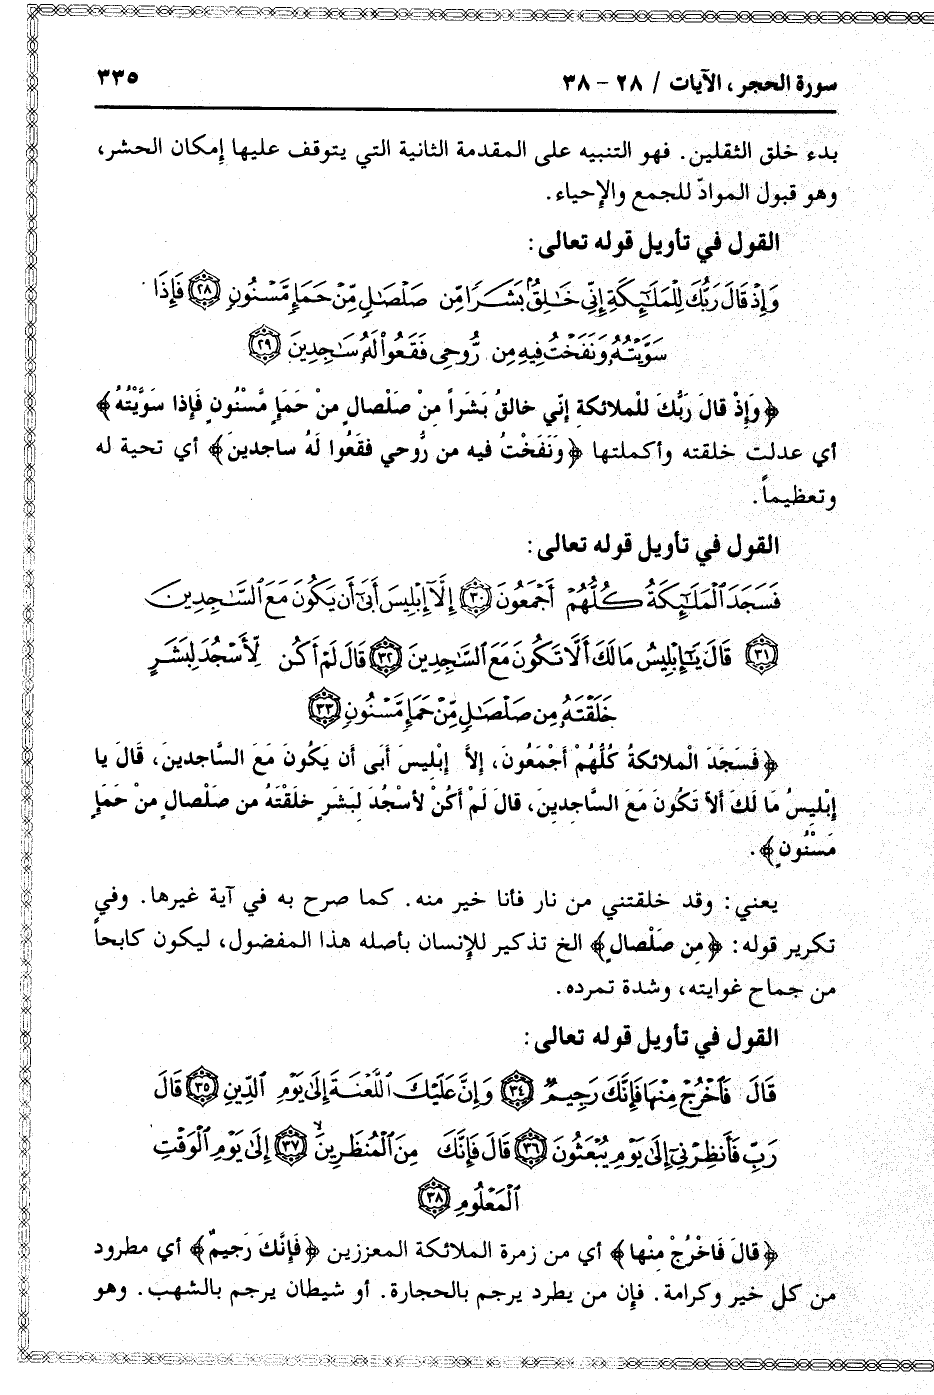 سورة الحجر، الآيات / ٢٨ - ٣٨ ٣٣٥
بدء خلق الثقلين. فهو التنبيه على المقدمة الثانية التي يتوقف عليها إمكان الحشر،
وهو قبول الموادّ للجمع والإحياء.
القول في تأويل قوله تعالى:
وَإِذۡ قَالَ رَبُّكَ لِلۡمَلَٰٓئِكَةِ إِنِّي خَٰلِقُۢ بَشَرٗا مِّن صَلۡصَٰلٖ مِّنۡ حَمَإٖ مَّسۡنُونٖ ٢٨ فَإِذَا
سَوَّيۡتُهُۥ وَنَفَخۡتُ فِيهِ مِن رُّوحِي فَقَعُواْ لَهُۥ سَٰجِدِينَ ٢٩
﴿وَإِذْ قالَ رَبُّكَ للْملائكة إنّي خالقُ بَشَراً منْ صَلْصالٍ منْ حَمَإٍ مَّسْنُونٍ فَإذا سَوَّيْتُهُ﴾
أي عدلت خلقته وأكملتها ﴿وَنَفَخْتُ فيه من رُّوحي فقَعُوا لَهُ ساجدينَ﴾ أي تحية له
وتعظيماً.
القول في تأويل قوله تعالى:
فَسَجَدَ ٱلۡمَلَٰٓئِكَةُ كُلُّهُمۡ أَجۡمَعُونَ ٣٠ إِلَّآ إِبۡلِيسَ أَبَىٰٓ أَن يَكُونَ مَعَ ٱلسَّٰجِدِينَ
٣١ قَالَ يَٰٓإِبۡلِيسُ مَا لَكَ أَلَّا تَكُونَ مَعَ ٱلسَّٰجِدِينَ ٣٢ قَالَ لَمۡ أَكُن لِّأَسۡجُدَ لِبَشَرٍ
خَلَقۡتَهُۥ مِن صَلۡصَٰلٖ مِّنۡ حَمَإٖ مَّسۡنُونٖ ٣٣
﴿فَسَجَدَ الْملائكةُ كُلُّهُمْ أَجْمَعُونَ، إلاَّ إبْليسَ أبَى أن يَكُونَ مَعَ الساجدينَ، قَالَ يا
إبْليسُ مَا لَكَ ألاَّ تَكُونَ مَعَ السَّاجدِينَ، قالَ لَمْ أَكُنْ لأسْجُدَ لبَشَرٍ خلَقْتَهُ من صَلْصالٍ منْ حَمَإٍ
مَسْنُونٍ﴾.
يعني: وقد خلقتني من نار فأنا خير منه. كما صرح به في آية غيرها. وفي
تكرير قوله: ﴿مِن صَلْصالٍ﴾ الخ تذكير للإنسان بأصله هذا المفضول، ليكون كابحاً
من جماح غوايته، وشدة تمرده.
القول في تأويل قوله تعالى:
قَالَ فَٱخۡرُجۡ مِنۡهَا فَإِنَّكَ رَجِيمٞ ٣٤ وَإِنَّ عَلَيۡكَ ٱللَّعۡنَةَ إِلَىٰ يَوۡمِ ٱلدِّينِ ٣٥ قَالَ
رَبِّ فَأَنظِرۡنِيٓ إِلَىٰ يَوۡمِ يُبۡعَثُونَ ٣٦ قَالَ فَإِنَّكَ مِنَ ٱلۡمُنظَرِينَ ٣٧ إِلَىٰ يَوۡمِ ٱلۡوَقۡتِ
ٱلۡمَعۡلُومِ ٣٨
﴿قالَ فَاخْرُجْ مِنْها﴾ أي من زمرة الملائكة المعززين ﴿فَإنَّكَ رَجيمٌ﴾ أي مطرود
من كل خير وكرامة. فإن من يطرد يرجم بالحجارة. أو شيطان يرجم بالشهب. وهو